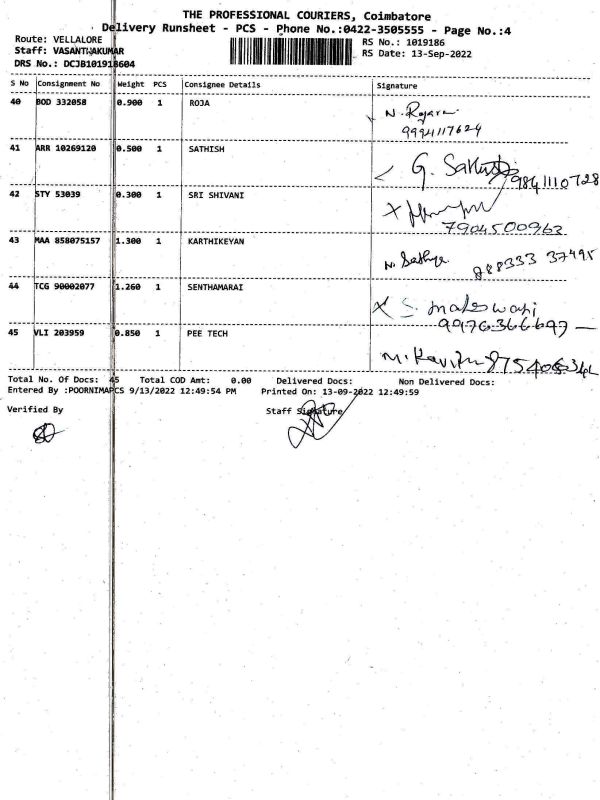 THE PROFESSIONAL COURIERS, Coimbatore
Delivery Runsheet - PCS - Phone No.:0422-3505555 - Page No.:4
Route: VELLALORE
RS No.: 1019186
Staff: VASANTHAKUMAR
RS Date: 13-Sep-2022
DRS No.: DCJB101918604
S No Consignment No Weight PCS Consignee Details Signature
40 BOD 332058 0.900 1 ROJA N. Rojara
9994117624
41 ARR 10269120 0.500 1 SATHISH G. Sathish 9841110728
42 STY 53039 0.300 1 SRI SHIVANI
7904500963
43 MAA 858075157 1.300 1 KARTHIKEYAN N. Sathya 888333 37495
44 TCG 90002077 1.260 1 SENTHAMARAI S. maheswari
9976366697
45 VLI 203959 0.850 1 PEE TECH M. Kavitha
Total No. Of Docs: 45 Total COD Amt: 0.00 Delivered Docs: Non Delivered Docs:
Entered By :POORNIMAPCS 9/13/2022 12:49:54 PM Printed On: 13-09-2022 12:49:59
Verified By Staff Signature